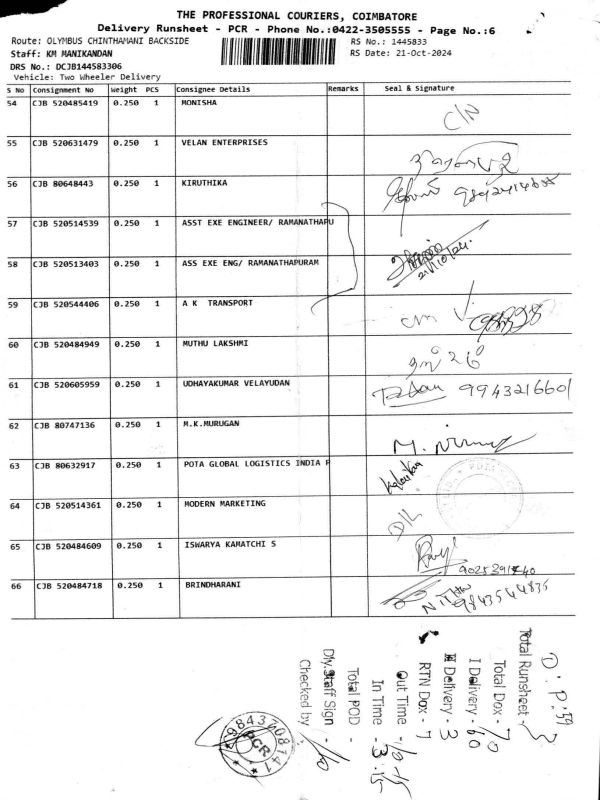 THE PROFESSIONAL COURIERS, COIMBATORE
Delivery Runsheet - PCR - Phone No.:0422-3505555 - Page No.:6
Route: OLYMBUS CHINTHAMANI BACKSIDE
RS No.: 1445833
Staff: KM MANIKANDAN
RS Date: 21-Oct-2024
DRS No.: DCJB144583306
Vehicle: Two Wheeler Delivery
S No Consignment No Weight PCS Consignee Details Remarks Seal & Signature
54 CJB 520485419 0.250 1 MONISHA C/N
55 CJB 520631479 0.250 1 VELAN ENTERPRISES
56 CJB 80648443 0.250 1 KIRUTHIKA
57 CJB 520514539 0.250 1 ASST EXE ENGINEER/ RAMANATHAPU
58 CJB 520513403 0.250 1 ASS EXE ENG/ RAMANATHAPURAM 21/10/24
59 CJB 520544406 0.250 1 A K TRANSPORT
60 CJB 520484949 0.250 1 MUTHU LAKSHMI
61 CJB 520605959 0.250 1 UDHAYAKUMAR VELAYUDAN 9943216601
62 CJB 80747136 0.250 1 M.K.MURUGAN
63 CJB 80632917 0.250 1 POTA GLOBAL LOGISTICS INDIA P
64 CJB 520514361 0.250 1 MODERN MARKETING D/L
65 CJB 520484609 0.250 1 ISWARYA KAMATCHI S
66 CJB 520484718 0.250 1 BRINDHARANI 9843544835
D: P: 59
Total Runsheet - 3
Total Dox - 70
I Delivery - 60
II Delivery - 3
RTN Dox - 7
Out Time - 10-15
In Time - 3:15
Total POD -
Dly.Staff Sign -
Checked by
9843708141
PCR